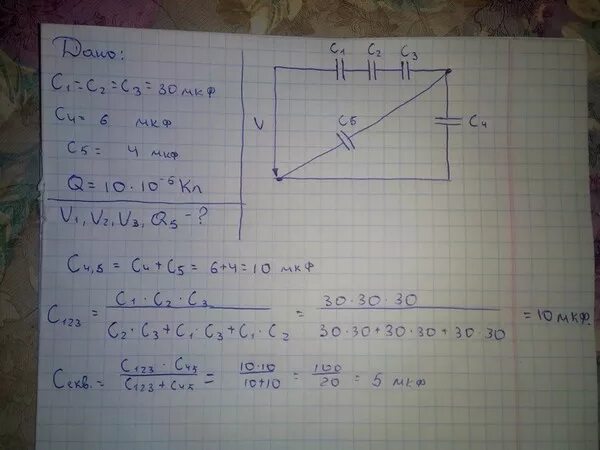 Дано:
C₁ = C₂ = C₃ = 30 мкф
C₄ = 6 мкф
C₅ = 4 мкф
Q = 10 · 10⁻⁶ Кл
V₁, V₂, V₃, Q₅ - ?
C₁ C₂ C₃
V C₅ C₄
C₄,₅ = C₄ + C₅ = 6+4 = 10 мкф
C₁₂₃ = C₁ · C₂ · C₃ / C₂ · C₃ + C₁ · C₃ + C₁ · C₂ = 30 · 30 · 30 / 30 · 30 + 30 · 30 + 30 · 30 = 10 мкф.
Cэкв. = C₁₂₃ · C₄₅ / C₁₂₃ + C₄₅ = 10 · 10 / 10+10 = 100 / 20 = 5 мкф